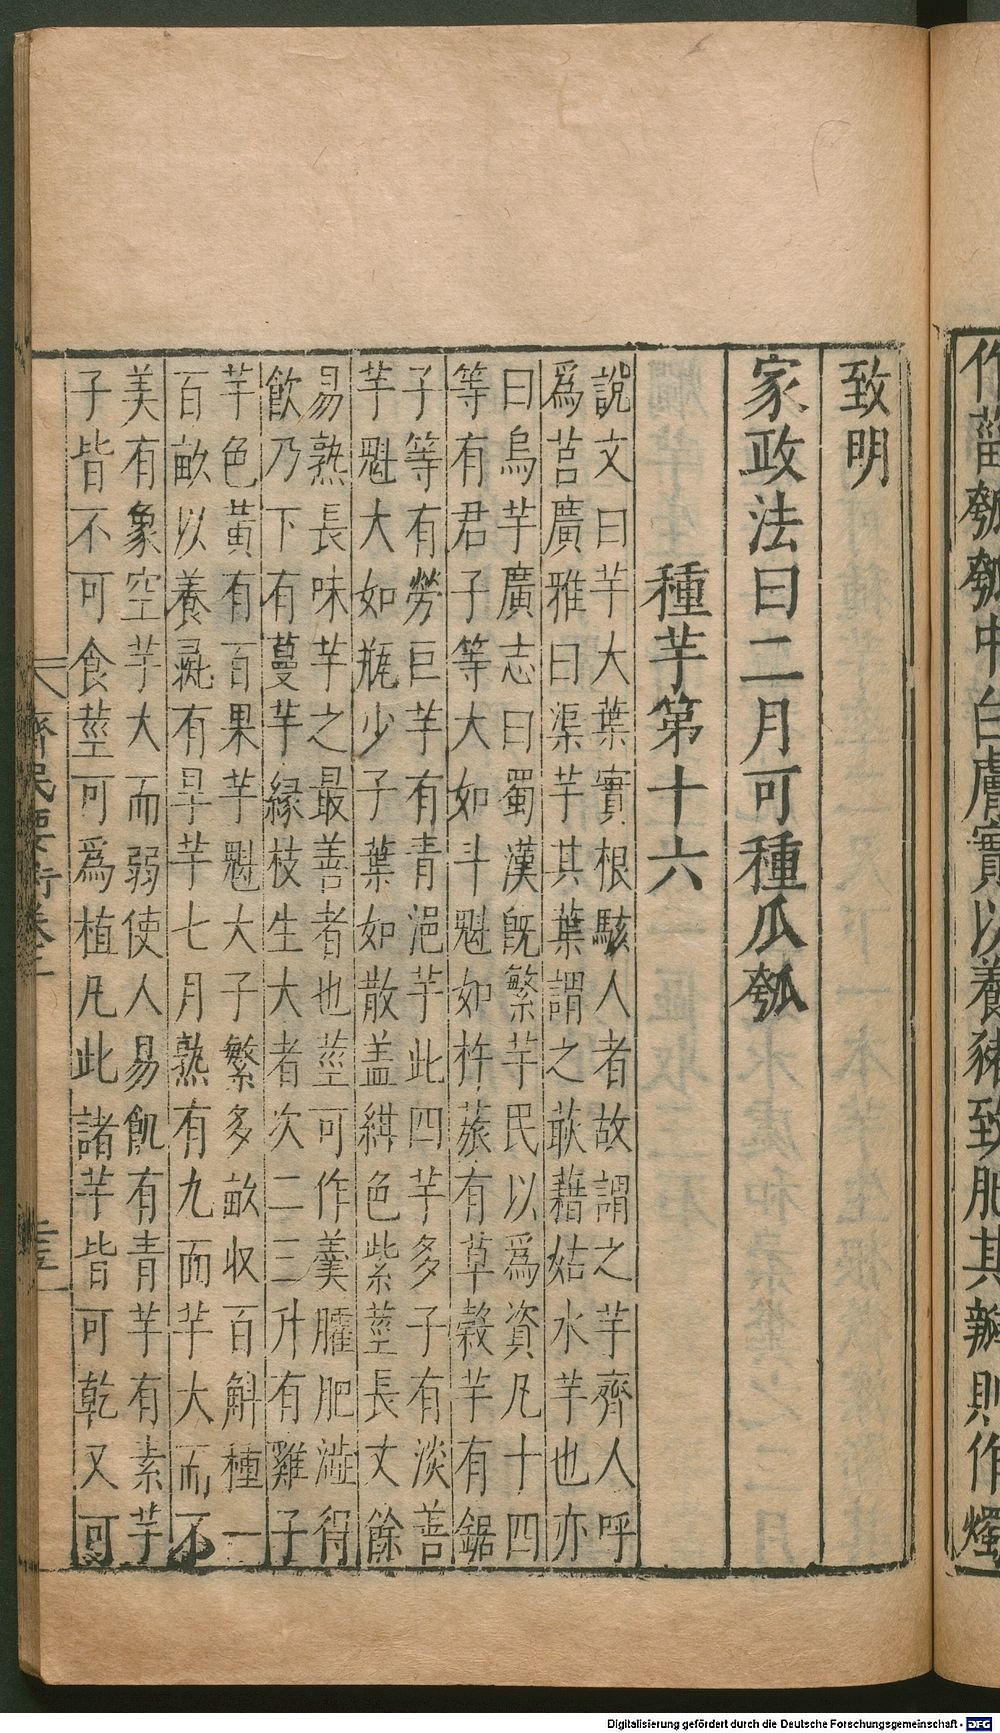 作蓲瓠瓠中白膚實以養豬致肥其瓣則作燭
致明
家政法曰二月可種瓜瓠
種芋第十六
說文曰芋大葉實根駭人者故謂之芋齊人呼
爲莒廣雅曰渠芋其葉謂之䔅藉姑水芋也亦
曰烏芋廣志曰蜀漢旣繁芋民以爲資凡十四
等有君子等大如斗魁如杵䉛有草榖芋有鋸
子等有勞巨芋有青浥芋此四芋多子有淡善
芋魁大如瓶少子葉如散盖紺色紫莖長丈餘
易熟長味芋之最善者也莖可作羹臛肥澁得
飲乃下有蔓芋緣枝生大者次二三升有雞子
芋色黃有百果芋魁大子繁多畝収百斛種一
百畝以養彘有旱芋七月熟有九面芋大而不
美有象空芋大而弱使人易飢有青芋有素芋
子皆不可食莖可爲植凡此諸芋皆可乾又可
齊民要術卷二
Digitalisierung gefördert durch die Deutsche Forschungsgemeinschaft - DFG